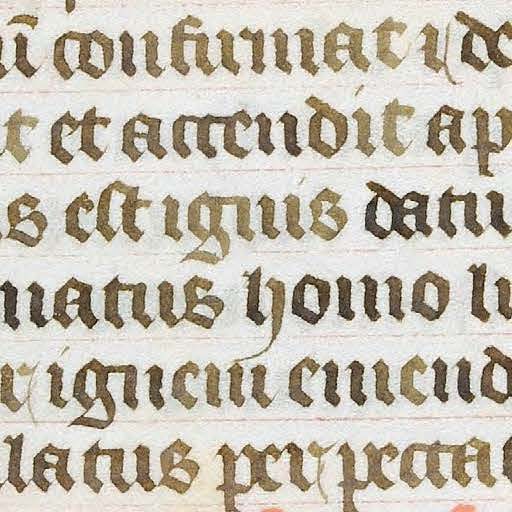 confirmat et de
et accendit ap
est ignis datu
natus homo lu
ignem emend
latus per pecca